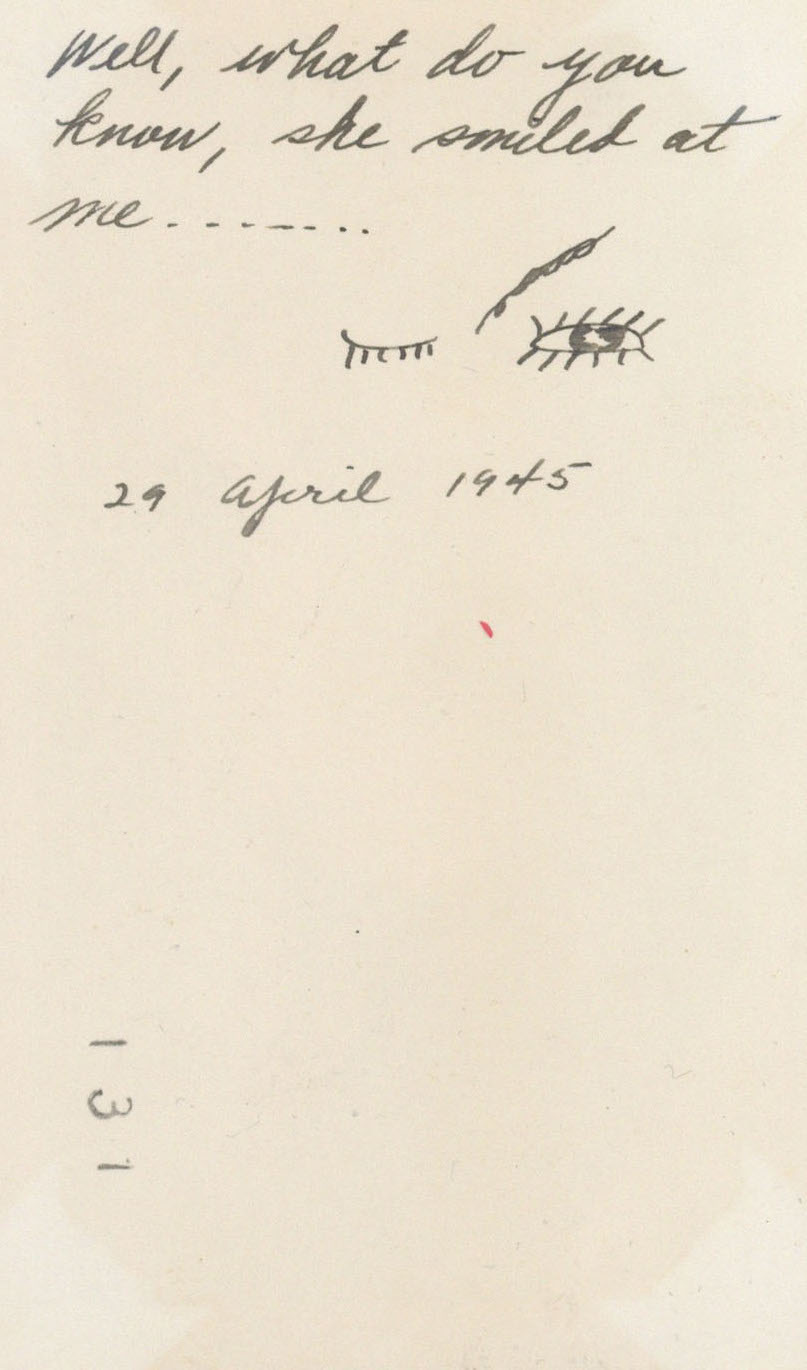 Well, what do you
know, she smiled at
me........
29 April 1945
131